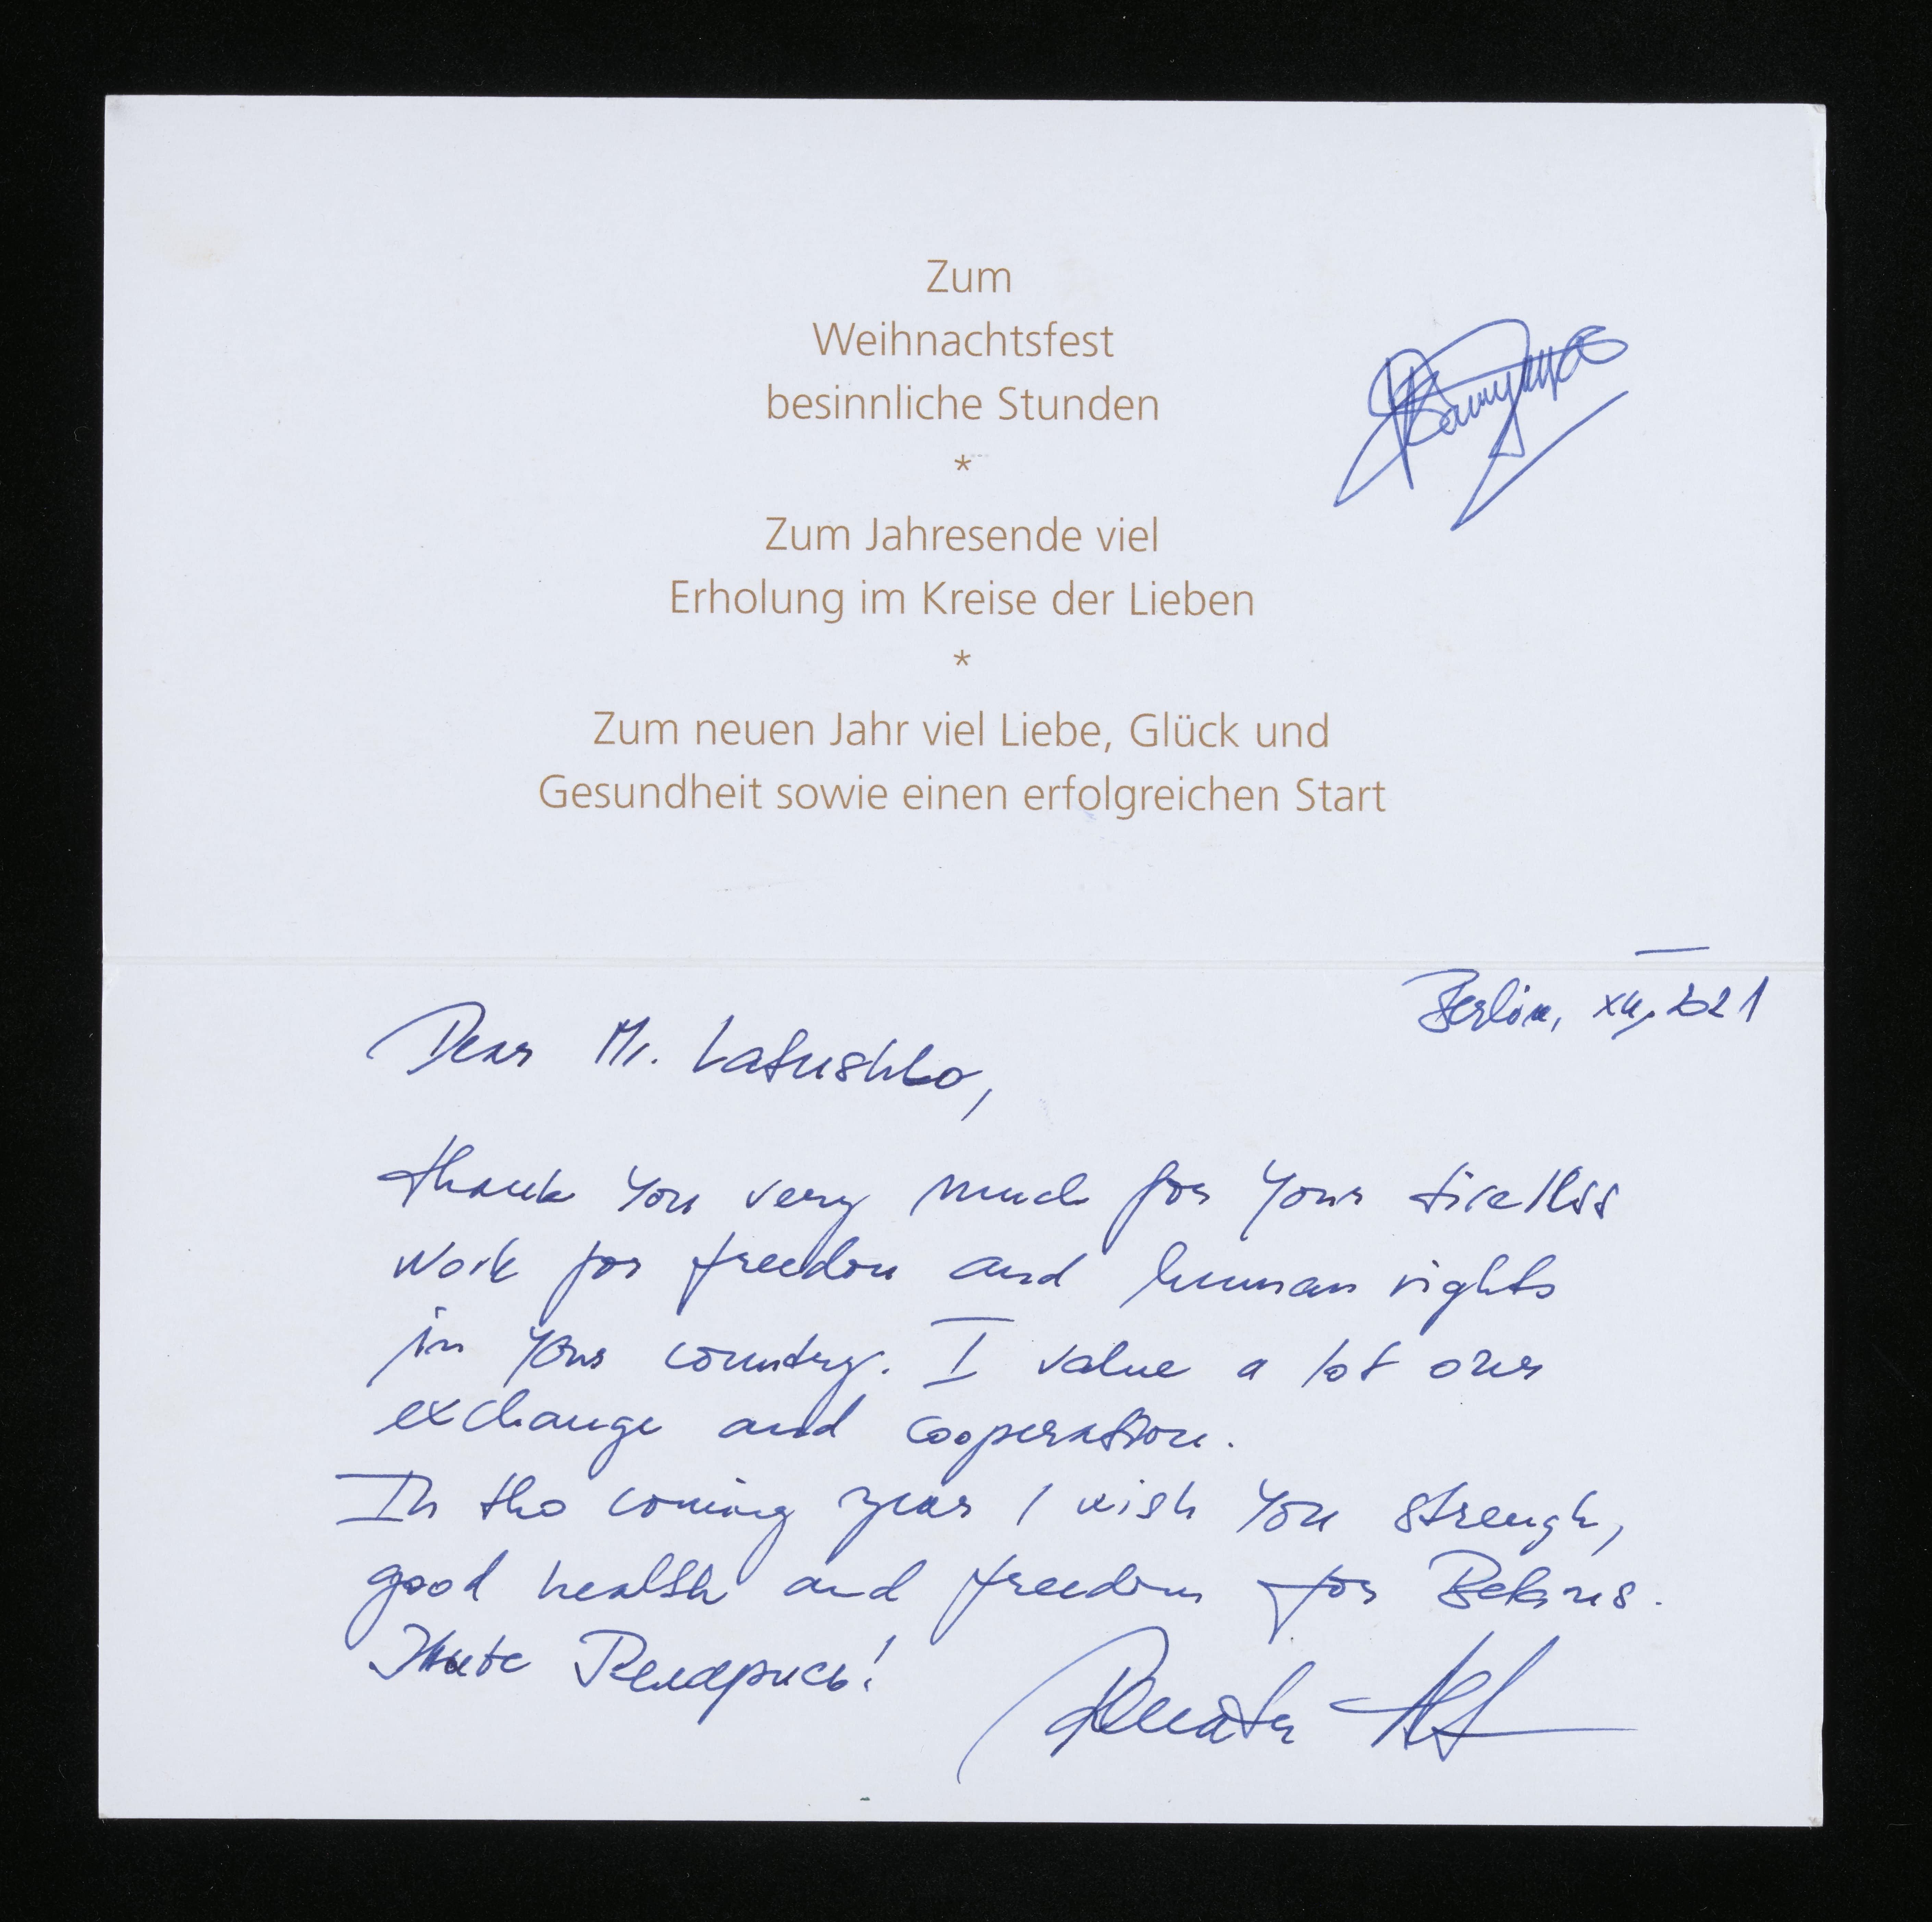 Zum
Weihnachtsfest
besinnliche Stunden
*
Zum Jahresende viel
Erholung im Kreise der Lieben
*
Zum neuen Jahr viel Liebe, Glück und
Gesundheit sowie einen erfolgreichen Start
Berlin, XII, 2021
Dear Mr. Latushko,
thank You very much for Your tireless
work for freedom and human rights
in Your country. I value a lot our
exchange and cooperation.
In the coming year I wish You strengh,
good health and freedom for Belarus.
Жыве Беларусь!
Renata